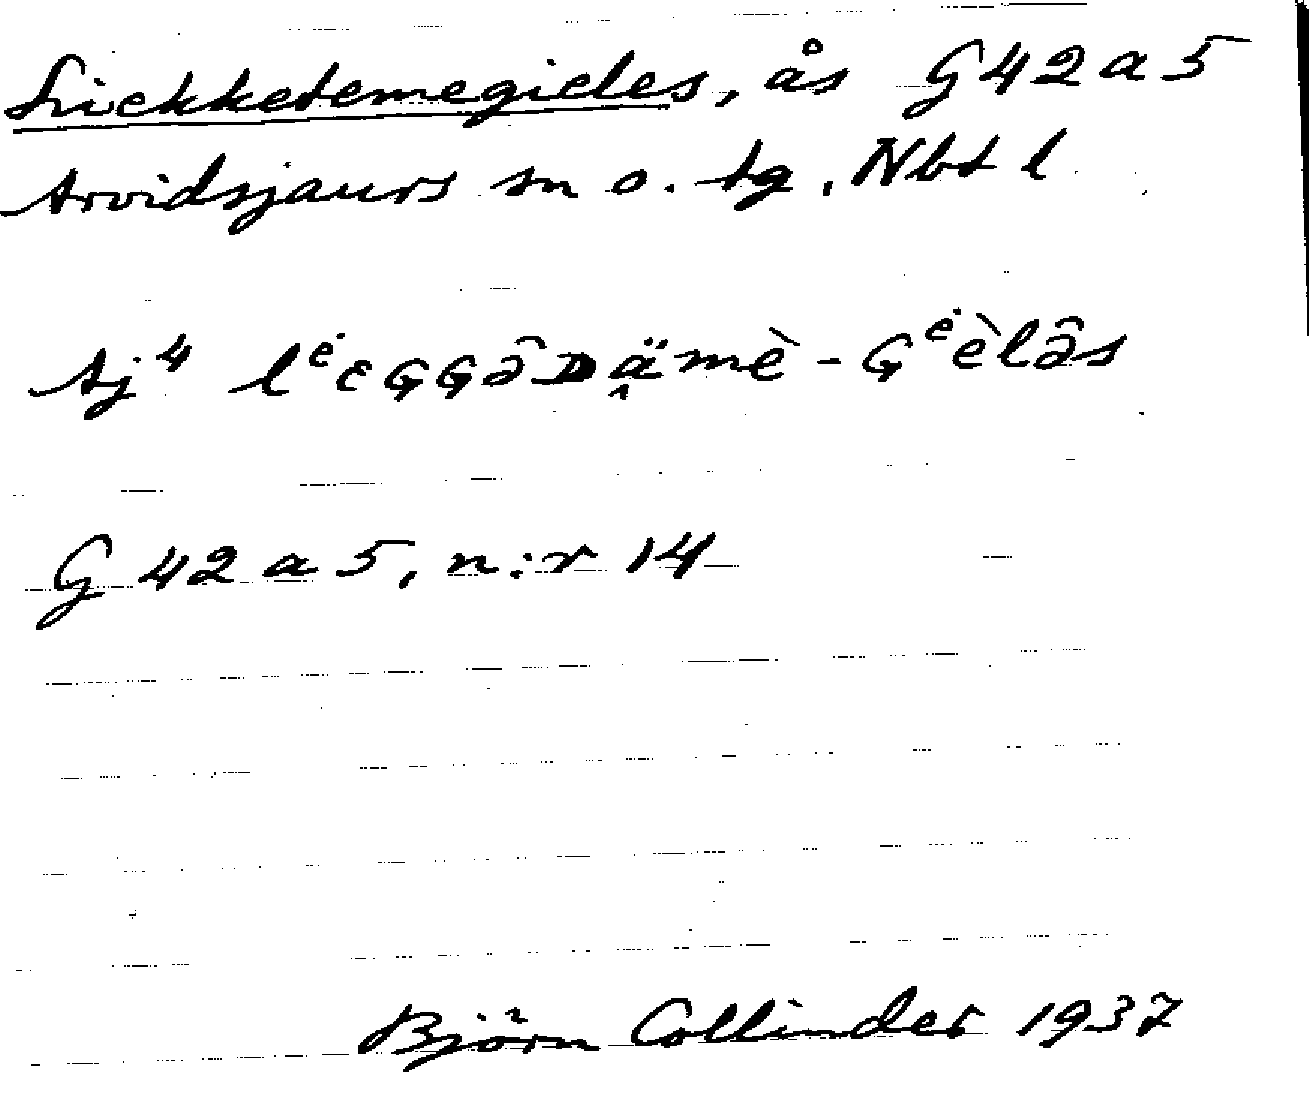 Liekketemegieles, ås G42a5
Arvidsjaurs sn o. tg, Nbt l
Aj⁴ lᵉ̇ɛGGə̑Dä̭mè - Gᵉ̇èlə̑s
G 42 a 5, n:r 14
Björn Collinder 1937